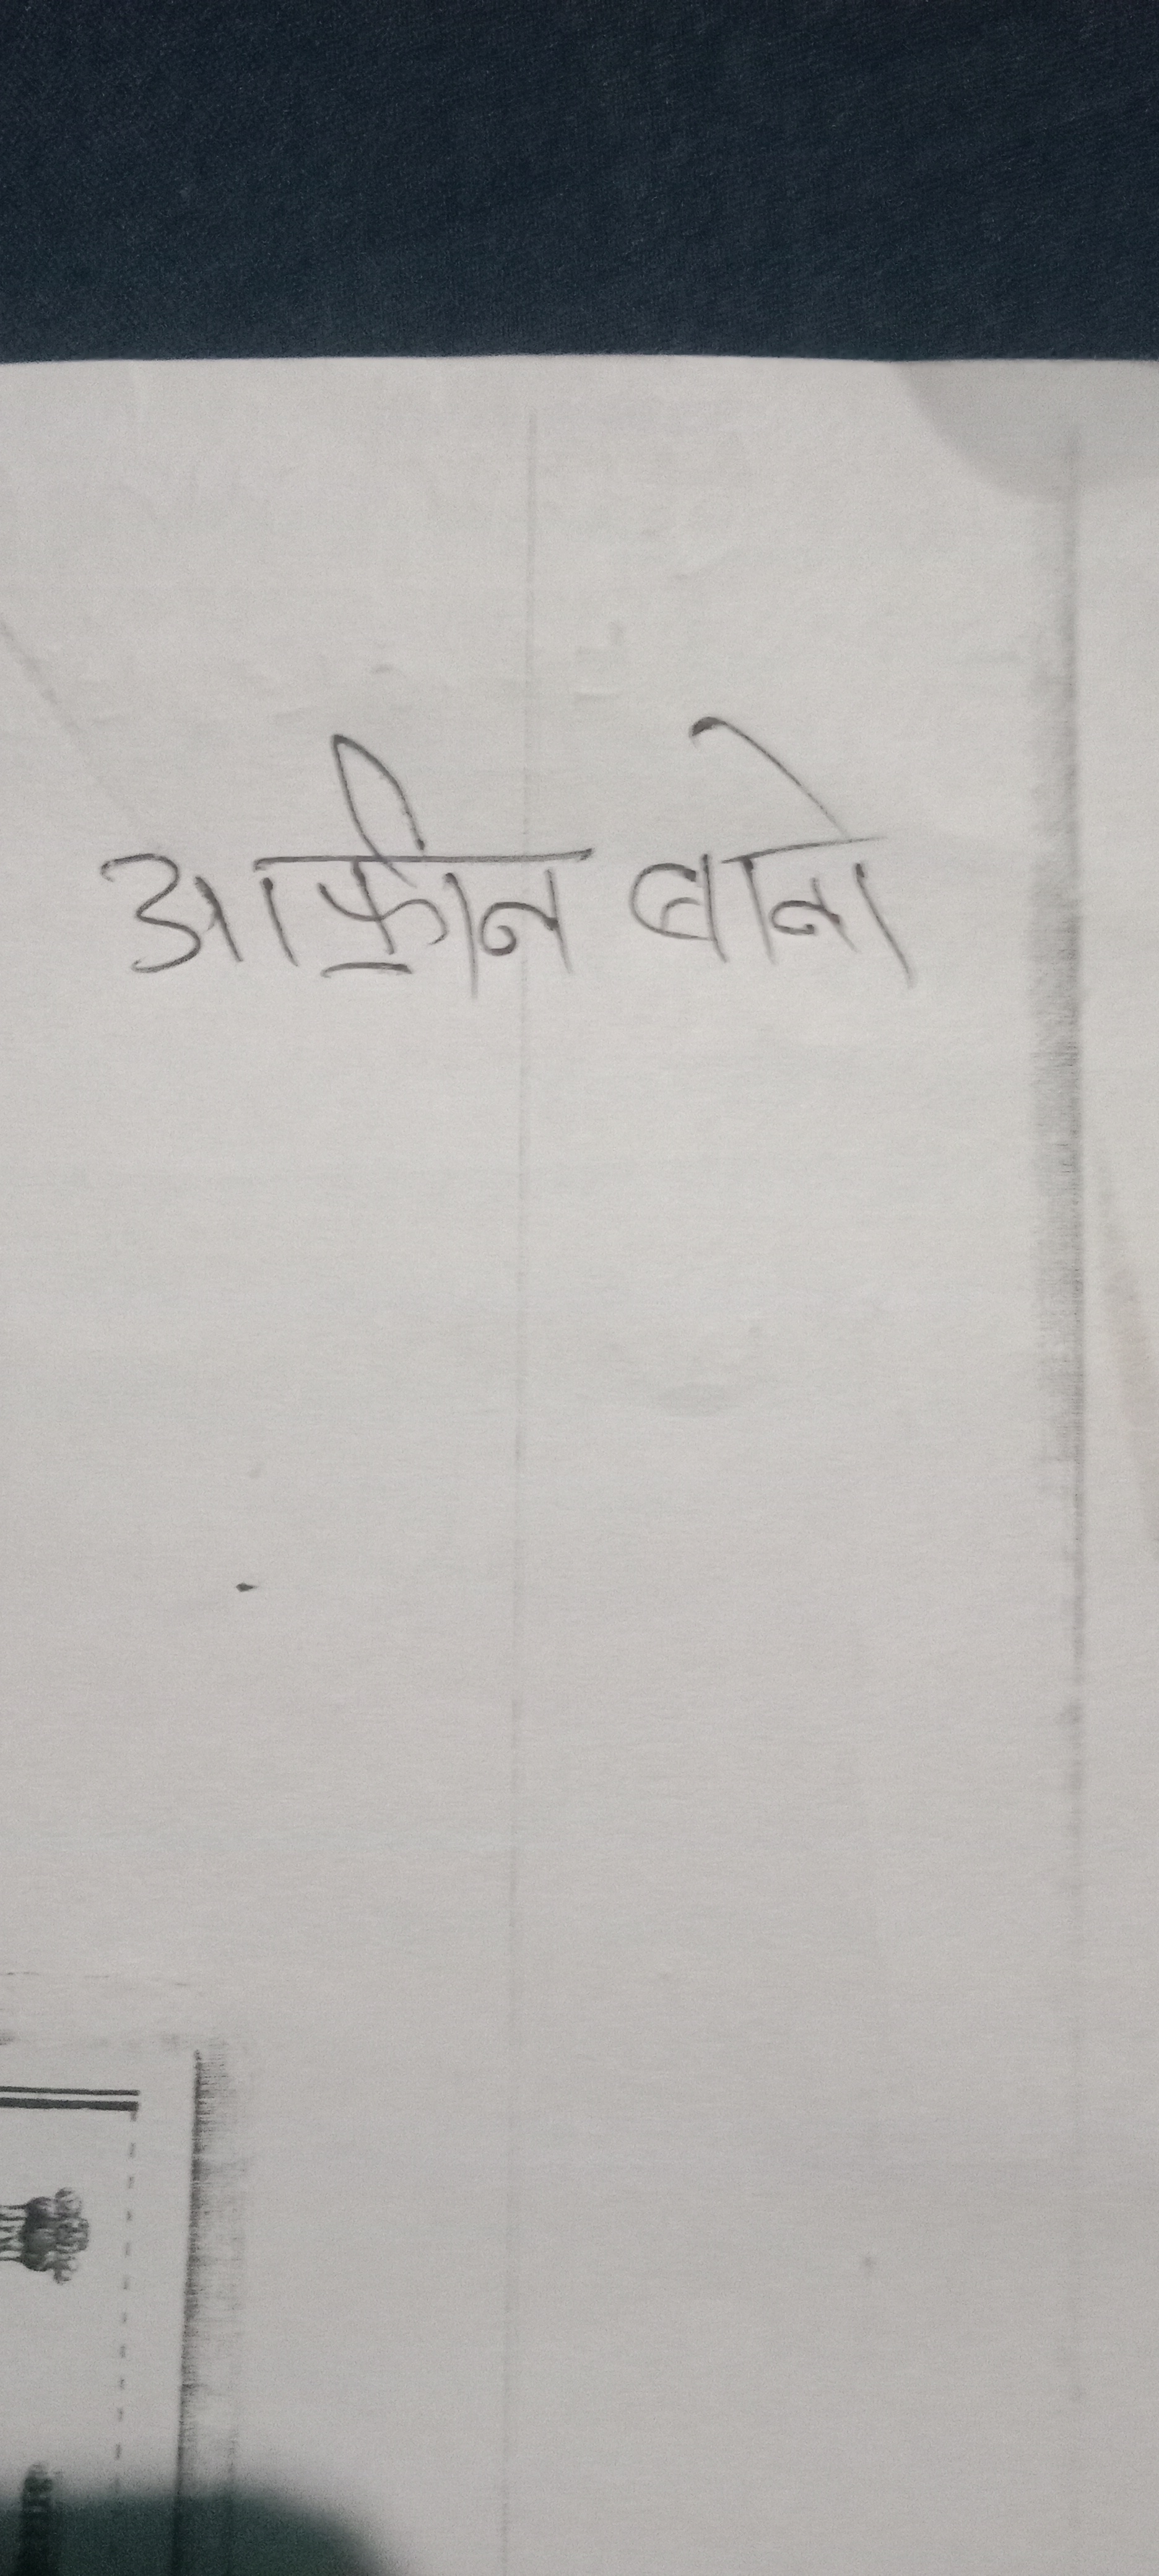 आफ्रीन बानो